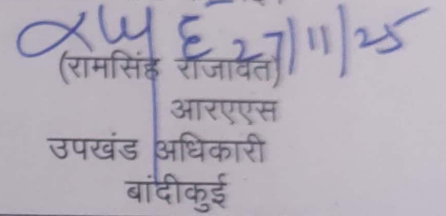 27/11/25
(रामसिंह राजावत)
आरएएस
उपखंड अधिकारी
बांदीकुई